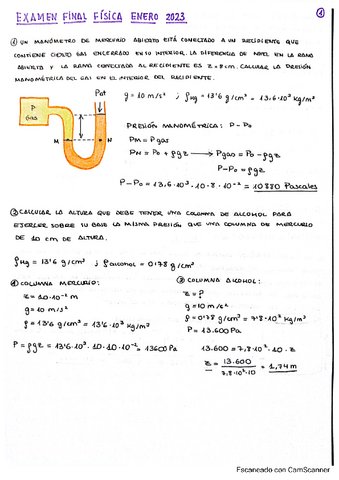 EXAMEN FINAL FÍSICA ENERO 2023
①
① UN MANÓMETRO DE MERCURIO ABIERTO ESTÁ CONECTADO A UN RECIPIENTE QUE
CONTIENE CIERTO GAS ENCERRADO EN SU INTERIOR. LA DIFERENCIA DE NIVEL EN LA RAMA
ABIERTA Y LA RAMA CONECTADA AL RECIPIENTE ES z = 8 cm. CALCULAR LA PRESIÓN
MANOMÉTRICA DEL GAS EN EL INTERIOR DEL RECIPIENTE.
Pat
P
GAS
M
N
g = 10 m/s² ; ρHg = 13'6 g/cm³ = 13'6·10³ kg/m³
PRESIÓN MANOMÉTRICA : P - P₀
PM = Pgas
PN = P₀ + ρgz → Pgas = P₀ - ρgz
P - P₀ = ρgz
P - P₀ = 13,6·10³·10·8·10⁻² = 10880 Pascales
② CALCULAR LA ALTURA QUE DEBE TENER UNA COLUMNA DE ALCOHOL PARA
EJERCER SOBRE SU BASE LA MISMA PRESIÓN QUE UNA COLUMNA DE MERCURIO
DE 10 CM DE ALTURA.
ρHg = 13'6 g/cm³ ; ρalcohol = 0'78 g/cm³
① COLUMNA MERCURIO:
z = 10·10⁻² m
g = 10 m/s²
ρ = 13'6 g/cm³ = 13'6·10³ kg/m³
P = ρgz = 13'6·10³·10·10·10⁻² = 13600 Pa
② COLUMNA ALCOHOL:
z = ?
g = 10 m/s²
ρ = 0'78 g/cm³ = 7'8·10² kg/m³
P = 13.600 Pa
13.600 = 7,8·10²·10·z
z = 13.600 / 7,8·10²·10 = 1,74 m
Escaneado con CamScanner